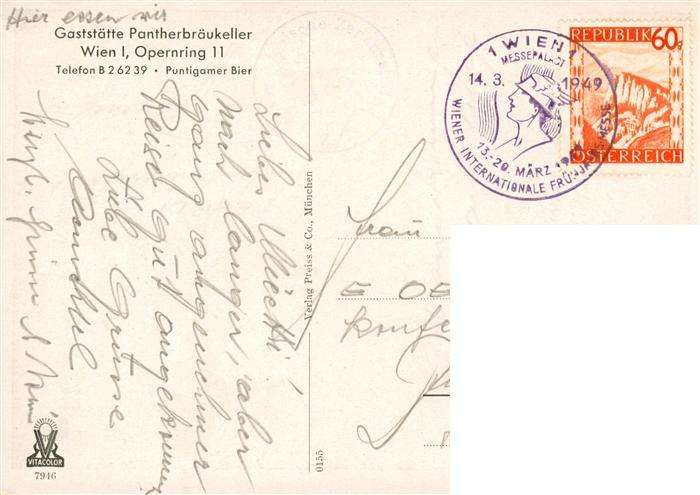 Hier essen wir
Gaststätte Pantherbräukeller
Wien I, Opernring 11
Telefon B 2 62 39 • Puntigamer Bier
Liebe
nach langer, aber
ganz angenehmer
Reise gut angekommen
Liebe Grüsse
Herzl.
VITACOLOR
7946
Verlag Preiss & Co., München
0155
1 WIEN 1
MESSEPALAST
14. 3. 1949
13.-20. MÄRZ
WIENER INTERNATIONALE FRÜHJAHRSMESSE
REPUBLIK 60g
ÖSTERREICH
Frau